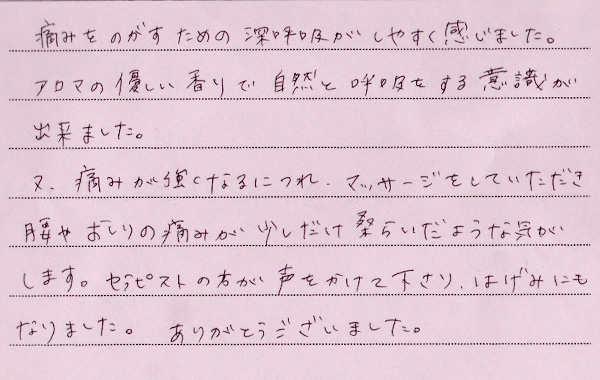 痛みをのがすための深呼吸がしやすく感じました。
アロマの優しい香りで自然と呼吸をする意識が
出来ました。
又、痛みが強くなるにつれ、マッサージをしていただき
腰やおしりの痛みが少しだけ柔らいだような気が
します。セラピストの方が声をかけて下さり、はげみにも
なりました。 ありがとうございました。